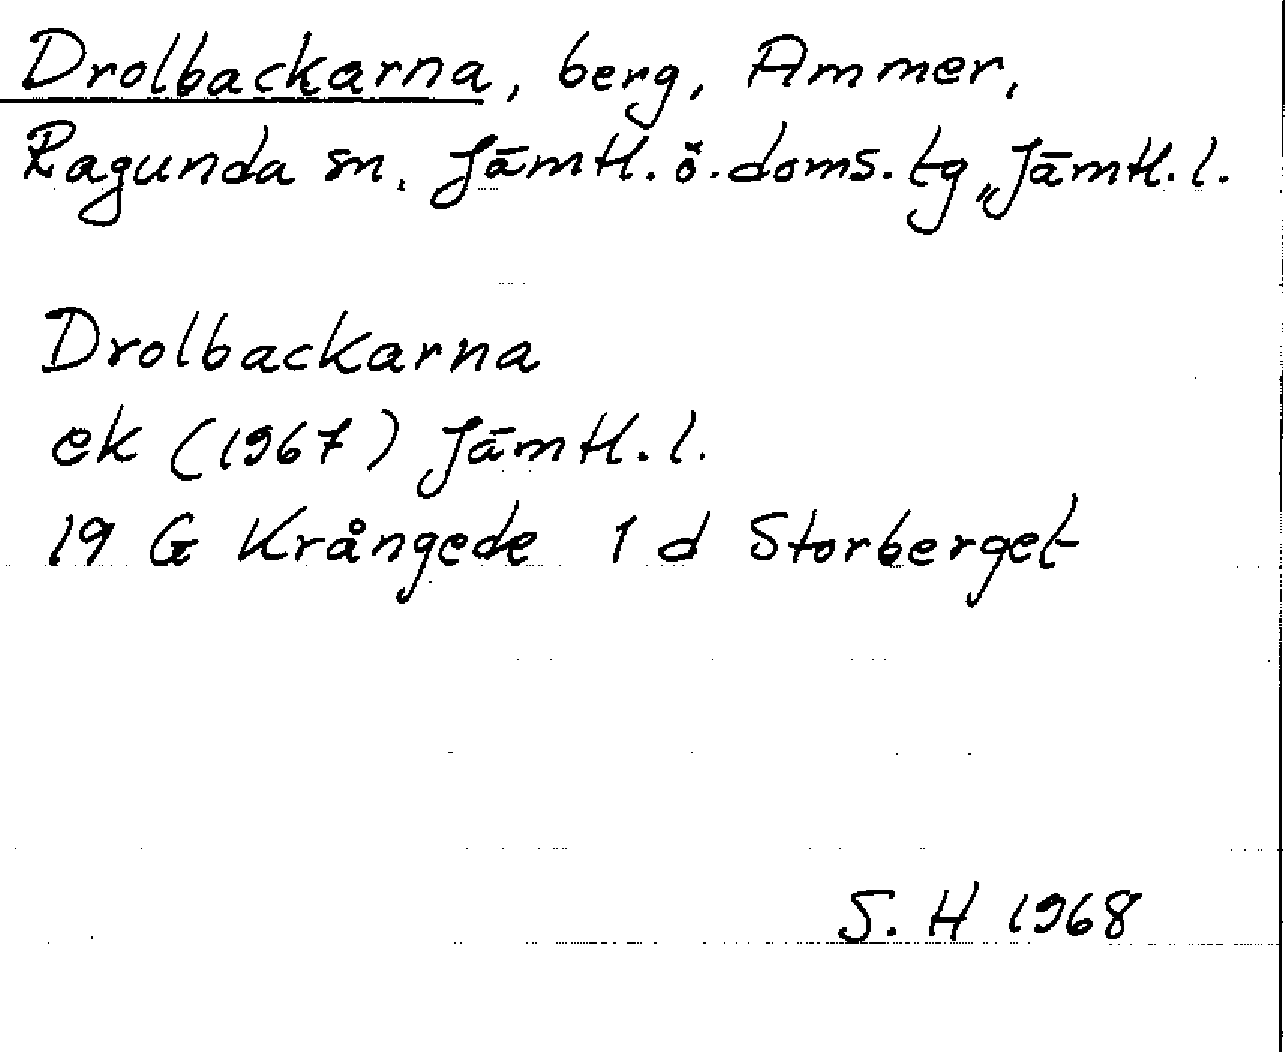 Drolbackarna, berg, Ammer,
Ragunda sn, Jämtl. ö. doms. tg, Jämtl. l.
Drolbackarna
ek (1967) Jämtl. l.
19 G Krångede 1 d Storberget
S. H 1968